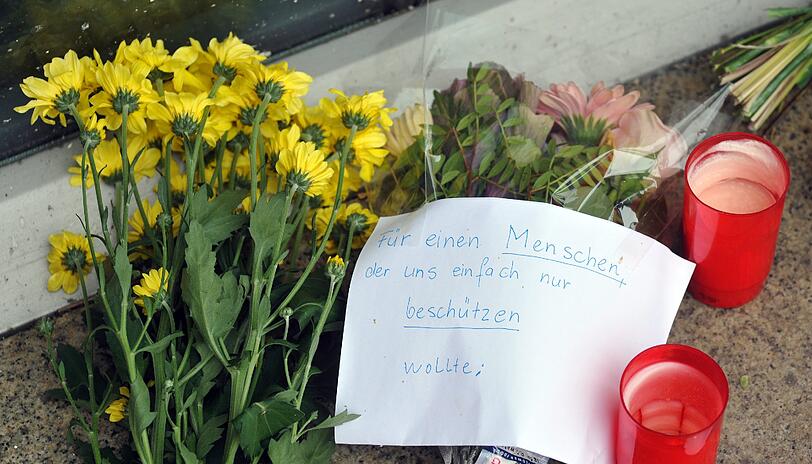 Für einen Menschen,
der uns einfach nur
beschützen
wollte;